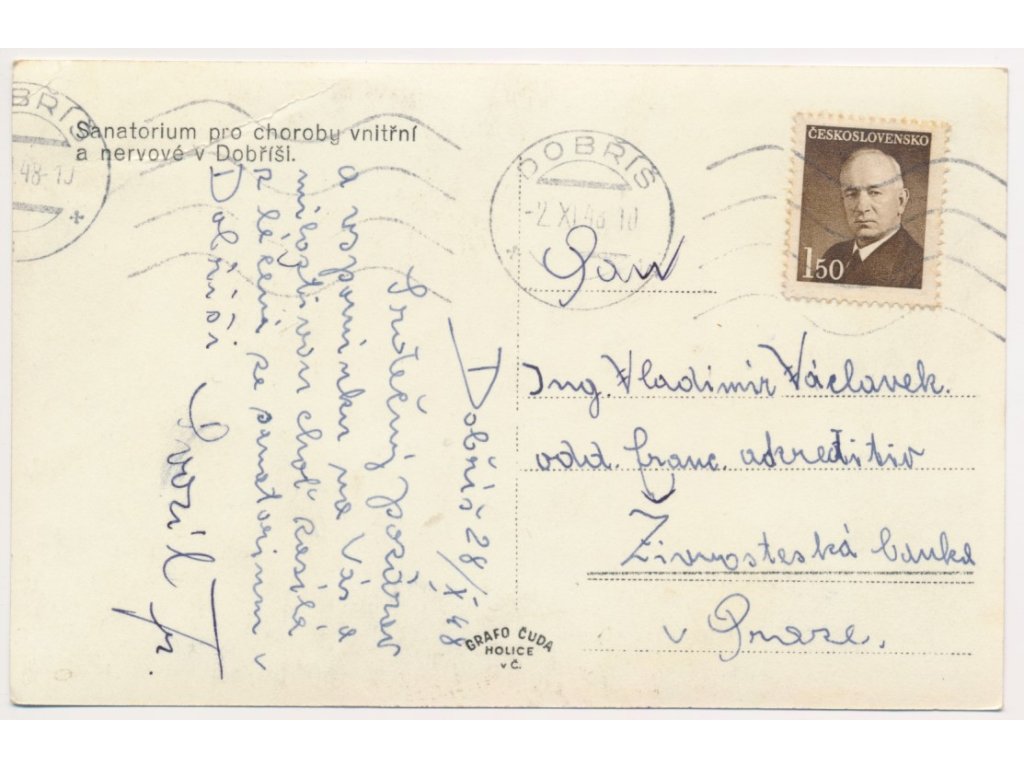 Sanatorium pro choroby vnitřní
a nervové v Dobříši.
DOBŘÍŠ
48-10
DOBŘÍŠ
-2.XI.48-10
ČESKOSLOVENSKO
1.50
Dobříš 28/X 48
Srdečný pozdrav
a vzpomínku na Vás a
milostivou choť zasílá
z léčení ze sanatorium v
Dobříši
Svozil Fr.
Pan
Ing. Vladimír Václavek.
odd. franc. akreditiv
Živnosteská banka
v Praze.
GRAFO ČUDA
HOLICE
v Č.